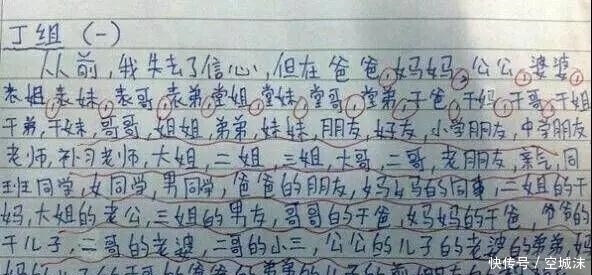 丁组（一）
从前,我失去了信心,但在爸爸,妈妈,公公,婆婆,
表姐,表妹,表哥,表弟,堂姐,堂妹,堂哥,堂弟,干爸,干妈,干哥,干姐
干弟,干妹,哥哥,姐姐,弟弟,妹妹,朋友,好友,小学朋友,中学朋友
老师,补习老师,大姐,二姐,三姐,大哥,二哥,老朋友,亲气,同
班同学,女同学,男同学,爸爸的朋友,妈妈的同事,二姐的干
妈,大姐的老公,三姐的男友,哥哥的干爸,妈妈的干爸,爷爷的
干儿子,二哥的老婆,二哥的小三,公公的儿子的老婆的弟弟,妈
快传号／空城沫